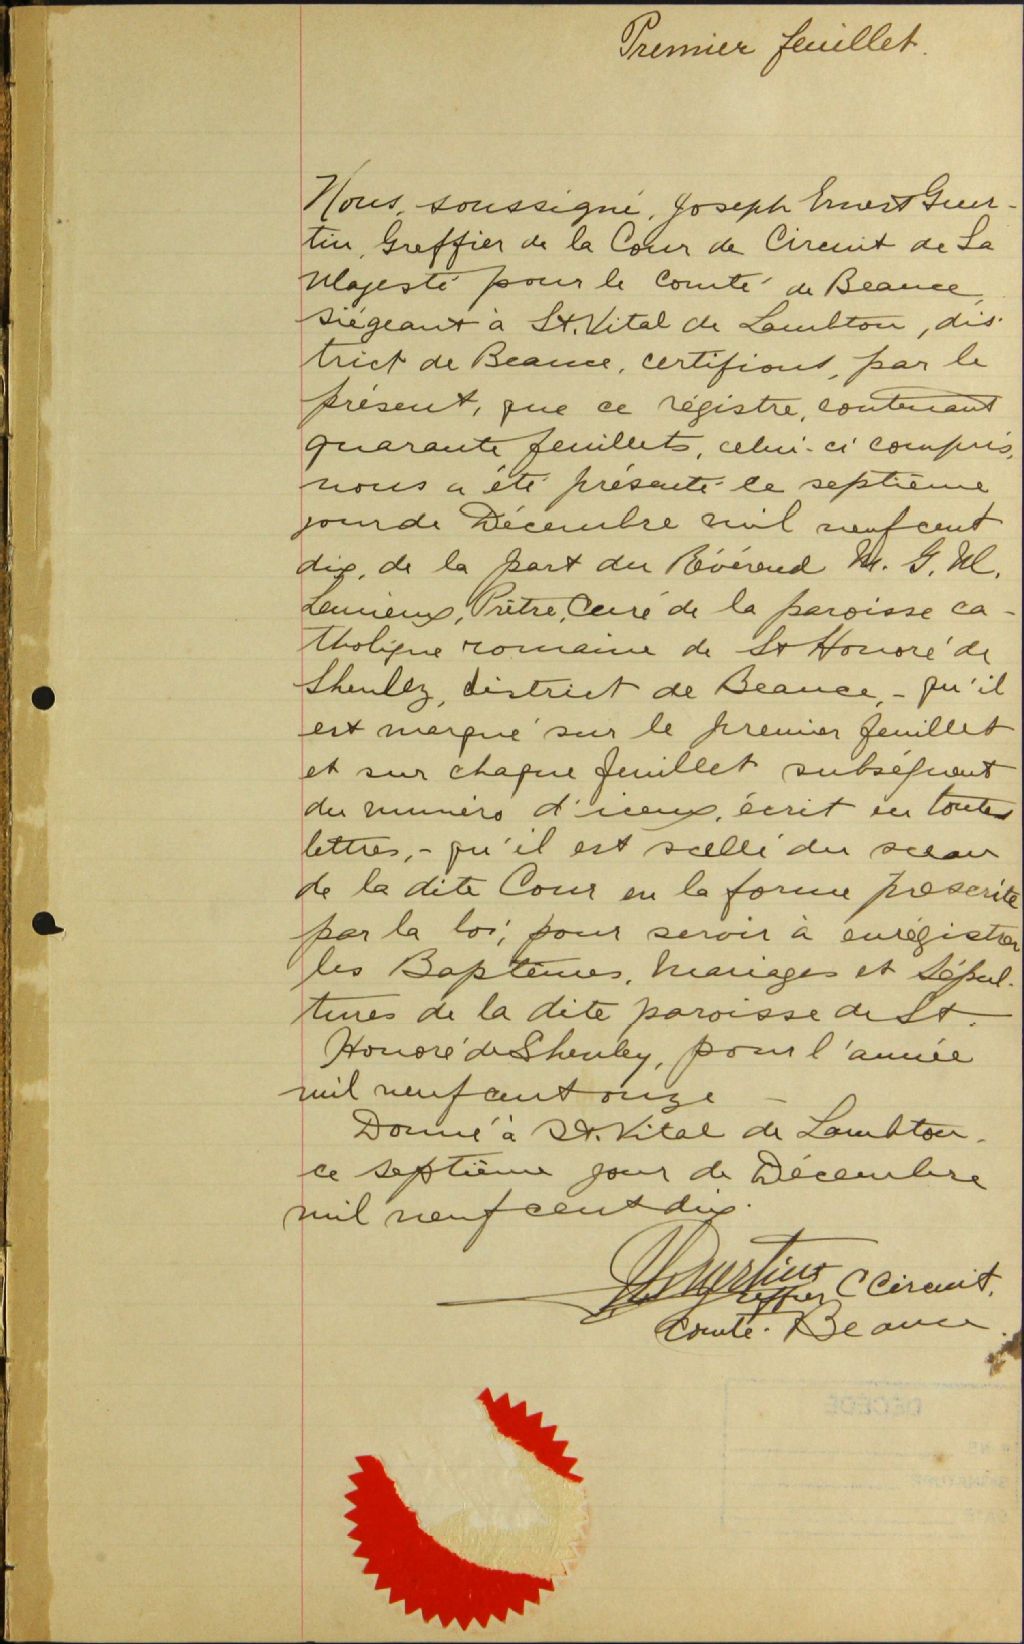 Premier feuillet.
Nous, soussigné, Joseph Ernest Guer-
tin, Greffier de la Cour de Circuit de Sa
Majesté pour le Comté de Beauce,
siégeant à St. Vital de Lambton, dis-
trict de Beauce, certifions, par le
présent, que ce régistre, contenant
quarante feuillets, celui-ci compris,
nous a été présenté le septième
jour de Décembre mil neuf cent
dix, de la part du Révérend M. G. M.
Lemieux, Prêtre, Curé de la paroisse ca-
tholique romaine de St Honoré de
Shenley, district de Beauce, - qu'il
est marqué sur le premier feuillet
et sur chaque feuillet subséquent
du numéro d'iceux, écrit en toutes
lettres, - qu'il est scellé du sceau
de la dite Cour en la forme prescrite
par la loi; pour servir à enrégistrer
les Baptêmes, Mariages et Sépul-
tures de la dite paroisse de St.
Honoré de Shenley, pour l'année
mil neuf cent onze -
Donné à St. Vital de Lambton
ce septième jour de Décembre
mil neuf cent dix.
Guertin
Greffier C Circuit,
Comté. Beauce.
DÉCÉDÉ